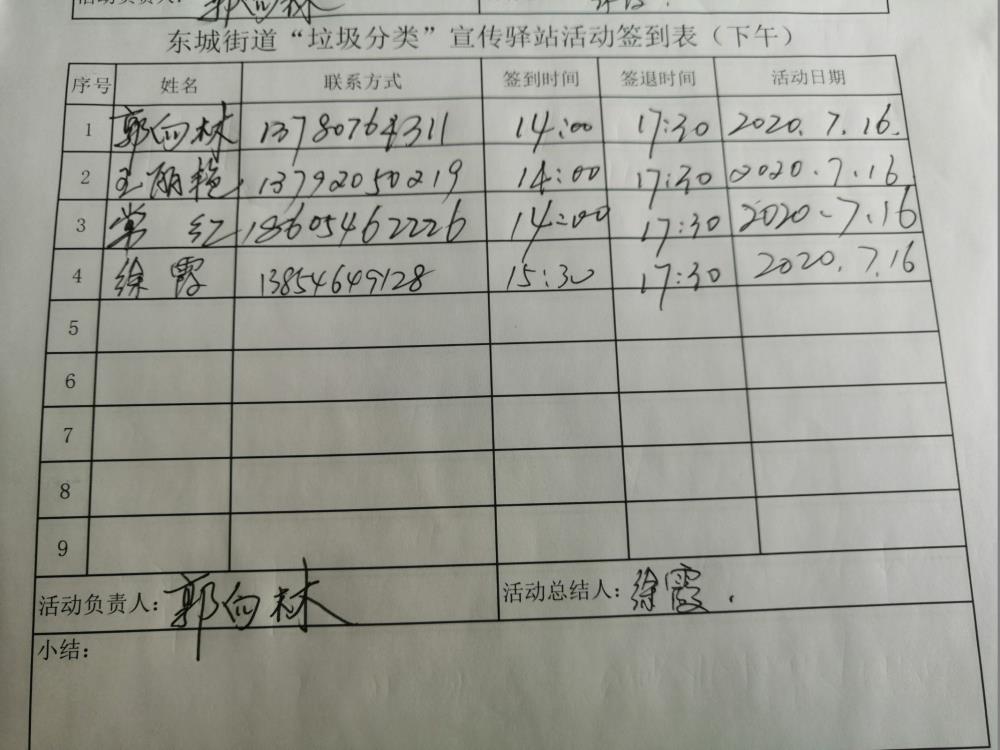 活动负责人：郭向林
东城街道“垃圾分类”宣传驿站活动签到表（下午）
序号 姓名 联系方式 签到时间 签退时间 活动日期
1 郭向林 13780764311 14:00 17:30 2020.7.16.
2 王丽艳 13792050219 14:00 17:30 2020.7.16
3 常红 18605462226 14:00 17:30 2020.7.16
4 徐霞 13854649128 15:30 17:30 2020.7.16
5
6
7
8
9
活动负责人：郭向林 活动总结人：徐霞.
小结：